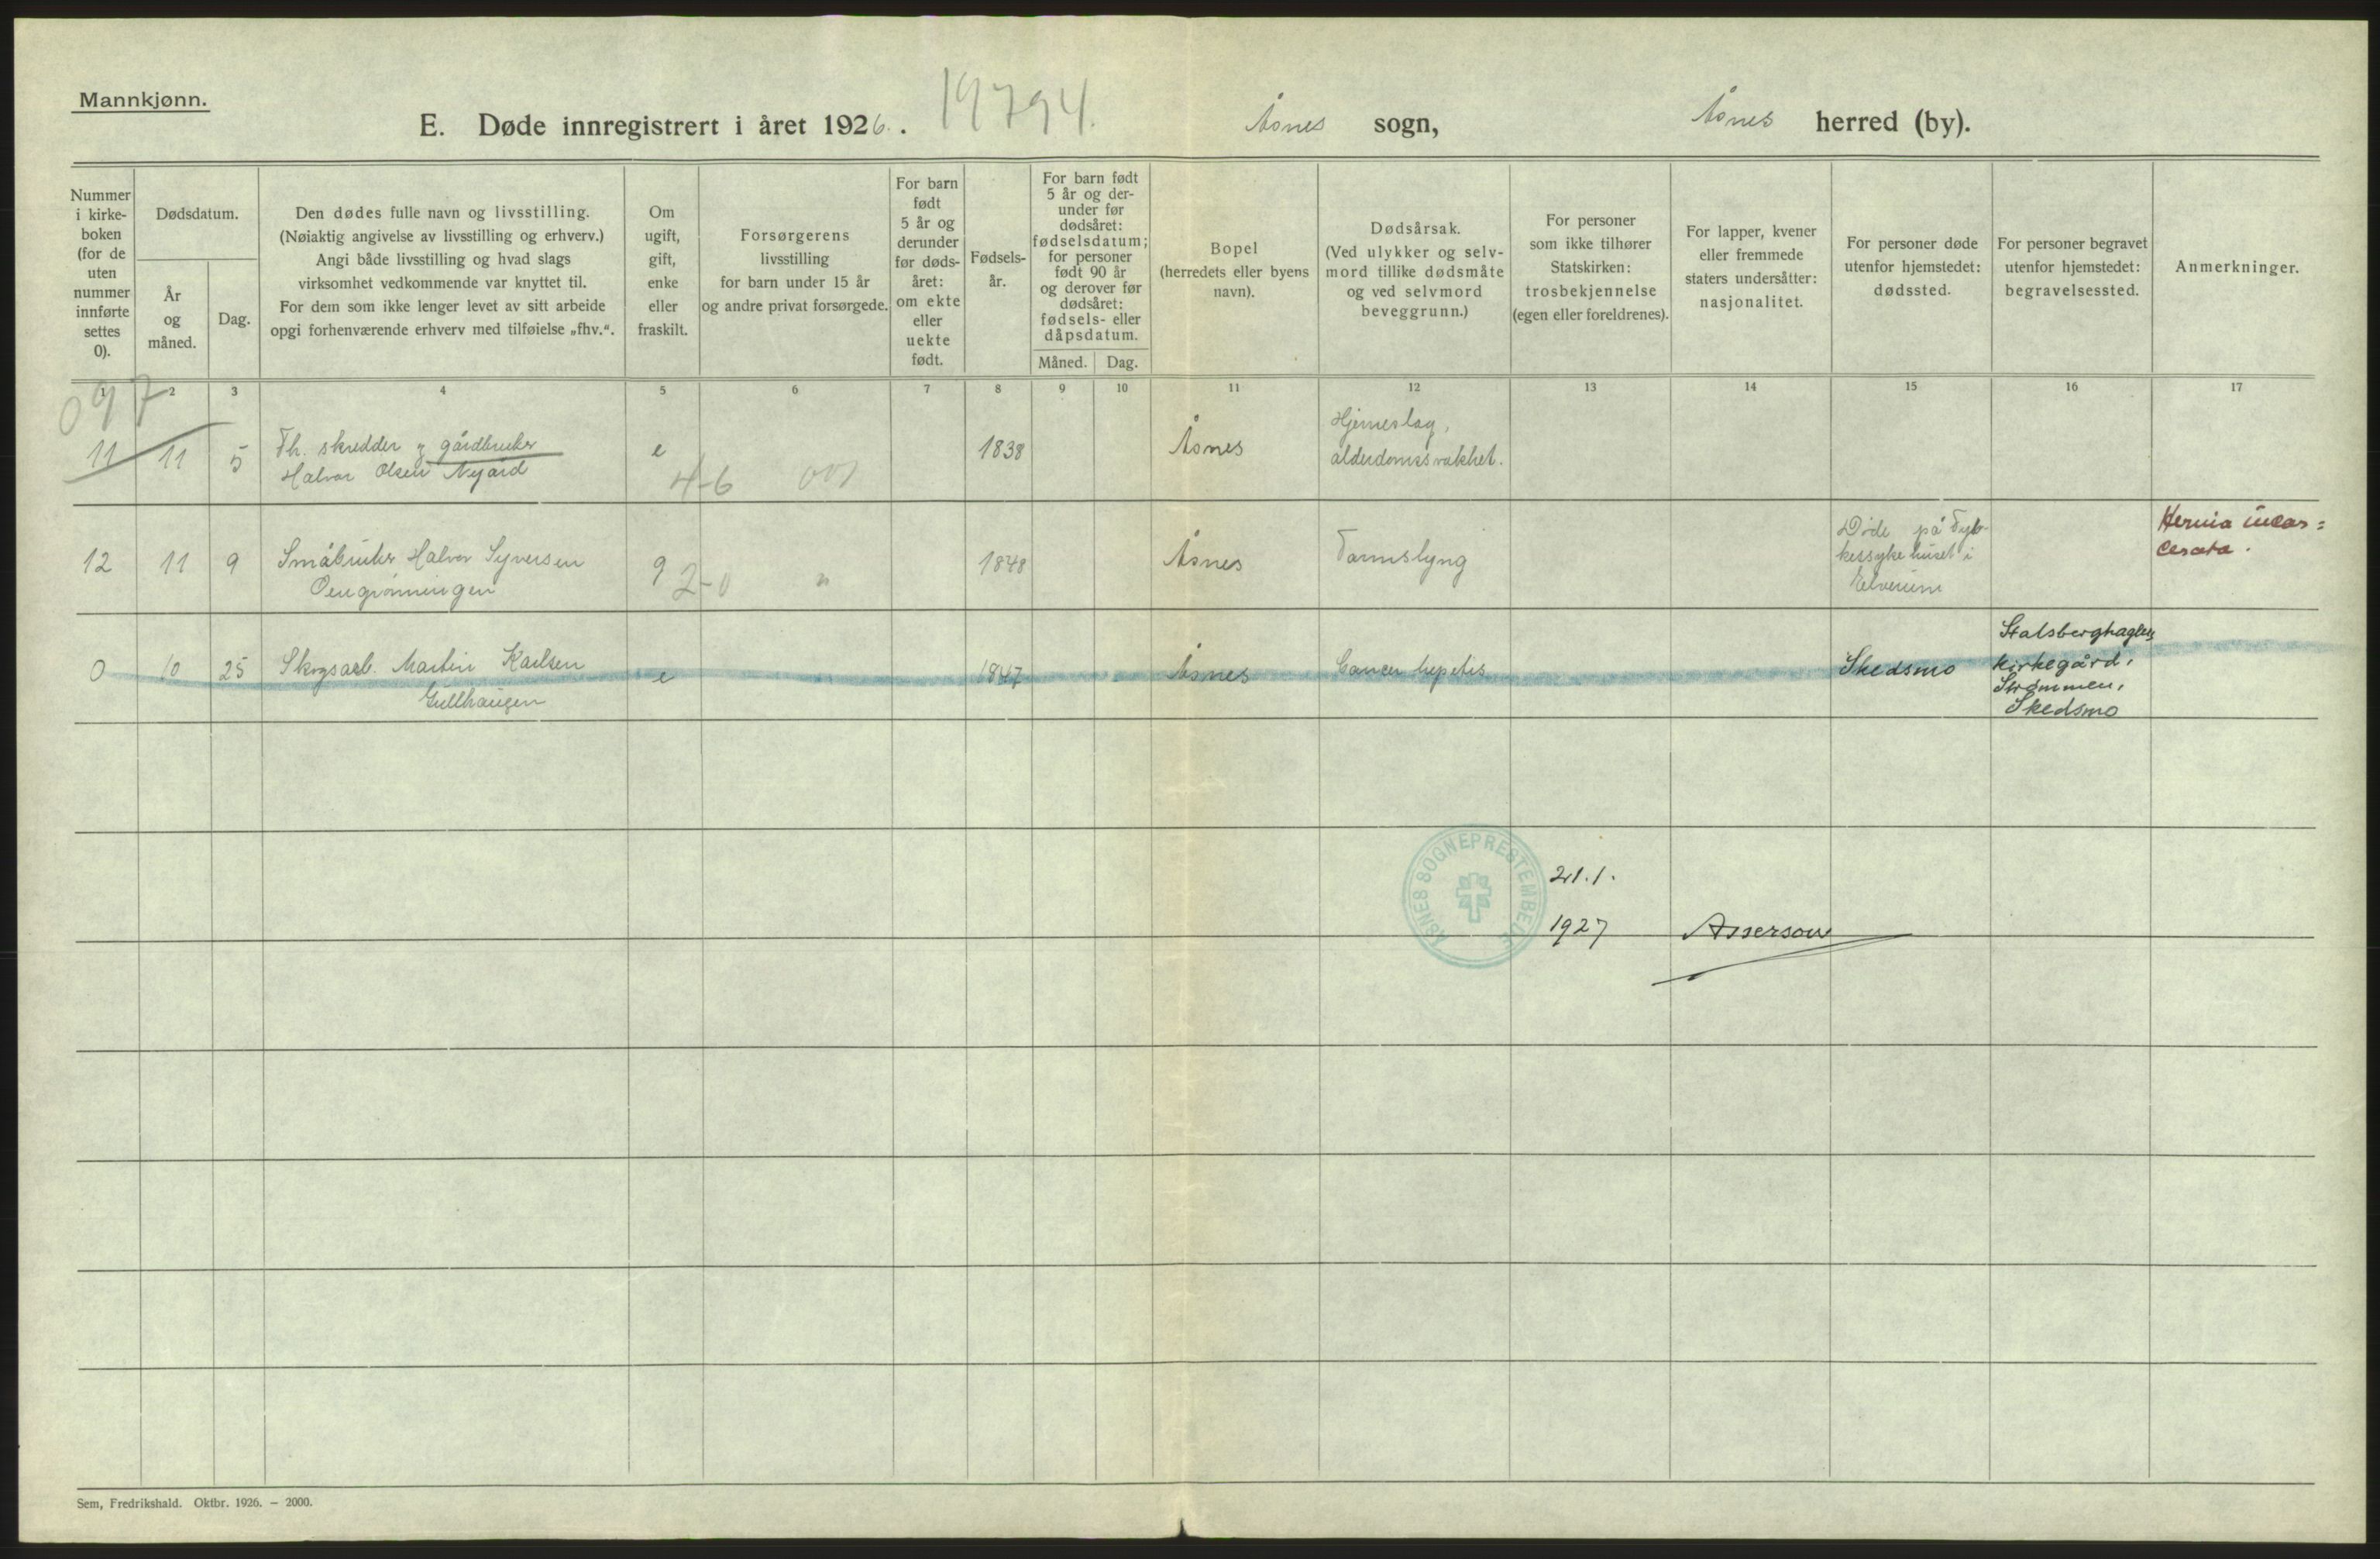 Mannkjønn.
E. Døde innregistrert i året 1926.
19794.
Åsnes sogn,
Åsnes herred (by).
Nummer
i kirke-
boken
(for de
uten
nummer
innførte
settes
0).
Dødsdatum.
År
og
måned.
Dag.
Den dødes fulle navn og livsstilling.
(Nøiaktig angivelse av livsstilling og erhverv.)
Angi både livsstilling og hvad slags
virksomhet vedkommende var knyttet til.
For dem som ikke lenger levet av sitt arbeide
opgi forhenværende erhverv med tilføielse „fhv.“.
Om
ugift,
gift,
enke
eller
fraskilt.
Forsørgerens
livsstilling
for barn under 15 år
og andre privat forsørgede.
For barn
født
5 år og
derunder
før døds-
året:
om ekte
eller
uekte
født.
Fødsels-
år.
For barn født
5 år og der-
under før
dødsåret:
fødselsdatum;
for personer
født 90 år
og derover før
dødsåret:
fødsels- eller
dåpsdatum.
Måned. Dag.
Bopel
(herredets eller byens
navn).
Dødsårsak.
(Ved ulykker og selv-
mord tillike dødsmåte
og ved selvmord
beveggrunn.)
For personer
som ikke tilhører
Statskirken:
trosbekjennelse
(egen eller foreldrenes).
For lapper, kvener
eller fremmede
staters undersåtter:
nasjonalitet.
For personer døde
utenfor hjemstedet:
dødssted.
For personer begravet
utenfor hjemstedet:
begravelsessted.
Anmerkninger.
1 2 3 4 5 6 7 8 9 10 11 12 13 14 15 16 17
097
11 11 5
Fh. skredder og gårdbruker
Halvor Olsen Nygård
e
4-6 001
1838
Åsnes
Hjerneslag,
alderdomssvakhet.
12 11 9
Småbruker Halvor Syversen
g
2-0 "
1848
Åsnes
Tarmslyng
Døde på Fyl-
kessykehuset i
Elverum
Hernia incar=
cerata.
0 10 25
Skogsarb. Martin Karlsen
Gullhaugen
e
1847
Åsnes
Cancer hepatis
Skedsmo
Stalsberghagens
kirkegård,
Strømmen,
Skedsmo
ÅSNES SOGNEPRESTEMBEDE
21.1.
1927
Asserson
Sem, Fredrikshald. Oktbr. 1926. – 2000.